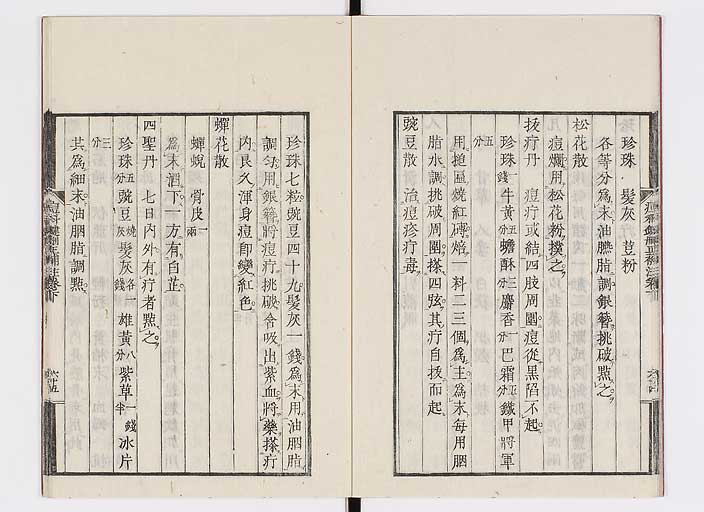 珍珠 髮灰 荳粉
各等分爲末油臙脂調銀簪挑破點之
松花散
痘爛用松花粉摸之
拔疔丹 痘疔或結四肢周圍痘從黑陷不起
珍珠一錢五分牛黃五分蟾酥三分麝香一分巴霜五分鐵甲將軍
用搥區燒紅磚焙一料二三個爲主爲末每用胭
脂水調挑破周圍搽四弦其疔自拔而起
豌豆散 治痘疹疔毒
珍珠七粒豌豆四十九髮灰一錢爲末用油胭脂
調勻用銀簪將痘疔挑破含吸出紫血將藥搽疔
內良久渾身痘卽變紅色
蟬花散
蟬蛻 骨皮一兩
爲末酒下一方有白芷
四聖丹 七日內外有疔者點之
珍珠五分豌豆燒灰髮灰各一錢雄黃八分紫草一錢半冰片
三分
共爲細末油胭脂調點